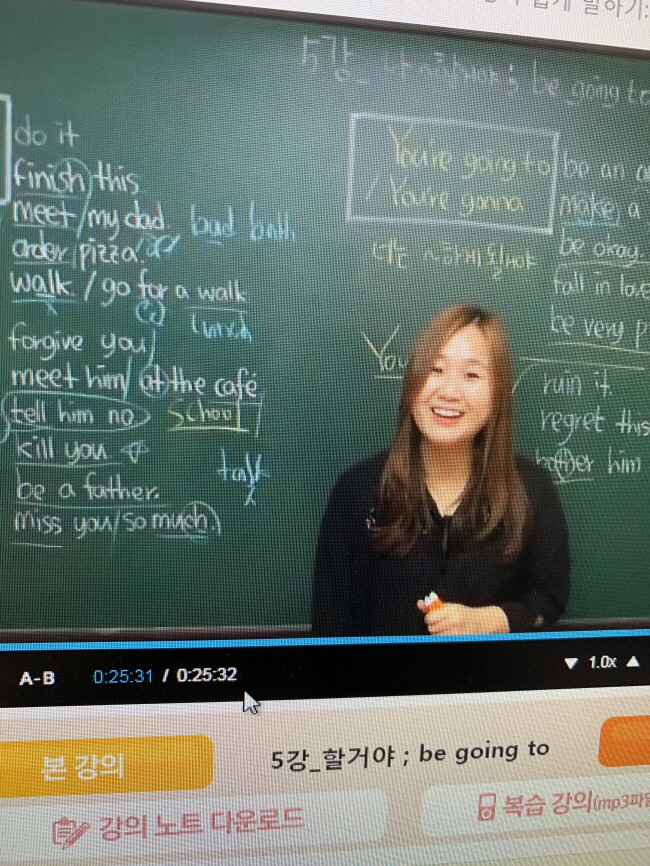 발하기:
5강_ be going to
do it
finish this
meet/my dad bad bath
order pizza!
walk / go for a walk
lunch
forgive you
meet him/ at the café
tell him no school
kill you
be a father.
miss you/so much.
talk
You're going to
/ You're gonna
너는 ~하게 될거야
You
be an
make a
be okay.
fall in love
be very p
ruin it.
regret this
bother him
A-B 0:25:31 / 0:25:32 ▼ 1.0x ▲
본 강의 5강_할거야 ; be going to
강의 노트 다운로드 복습 강의(mp3파일